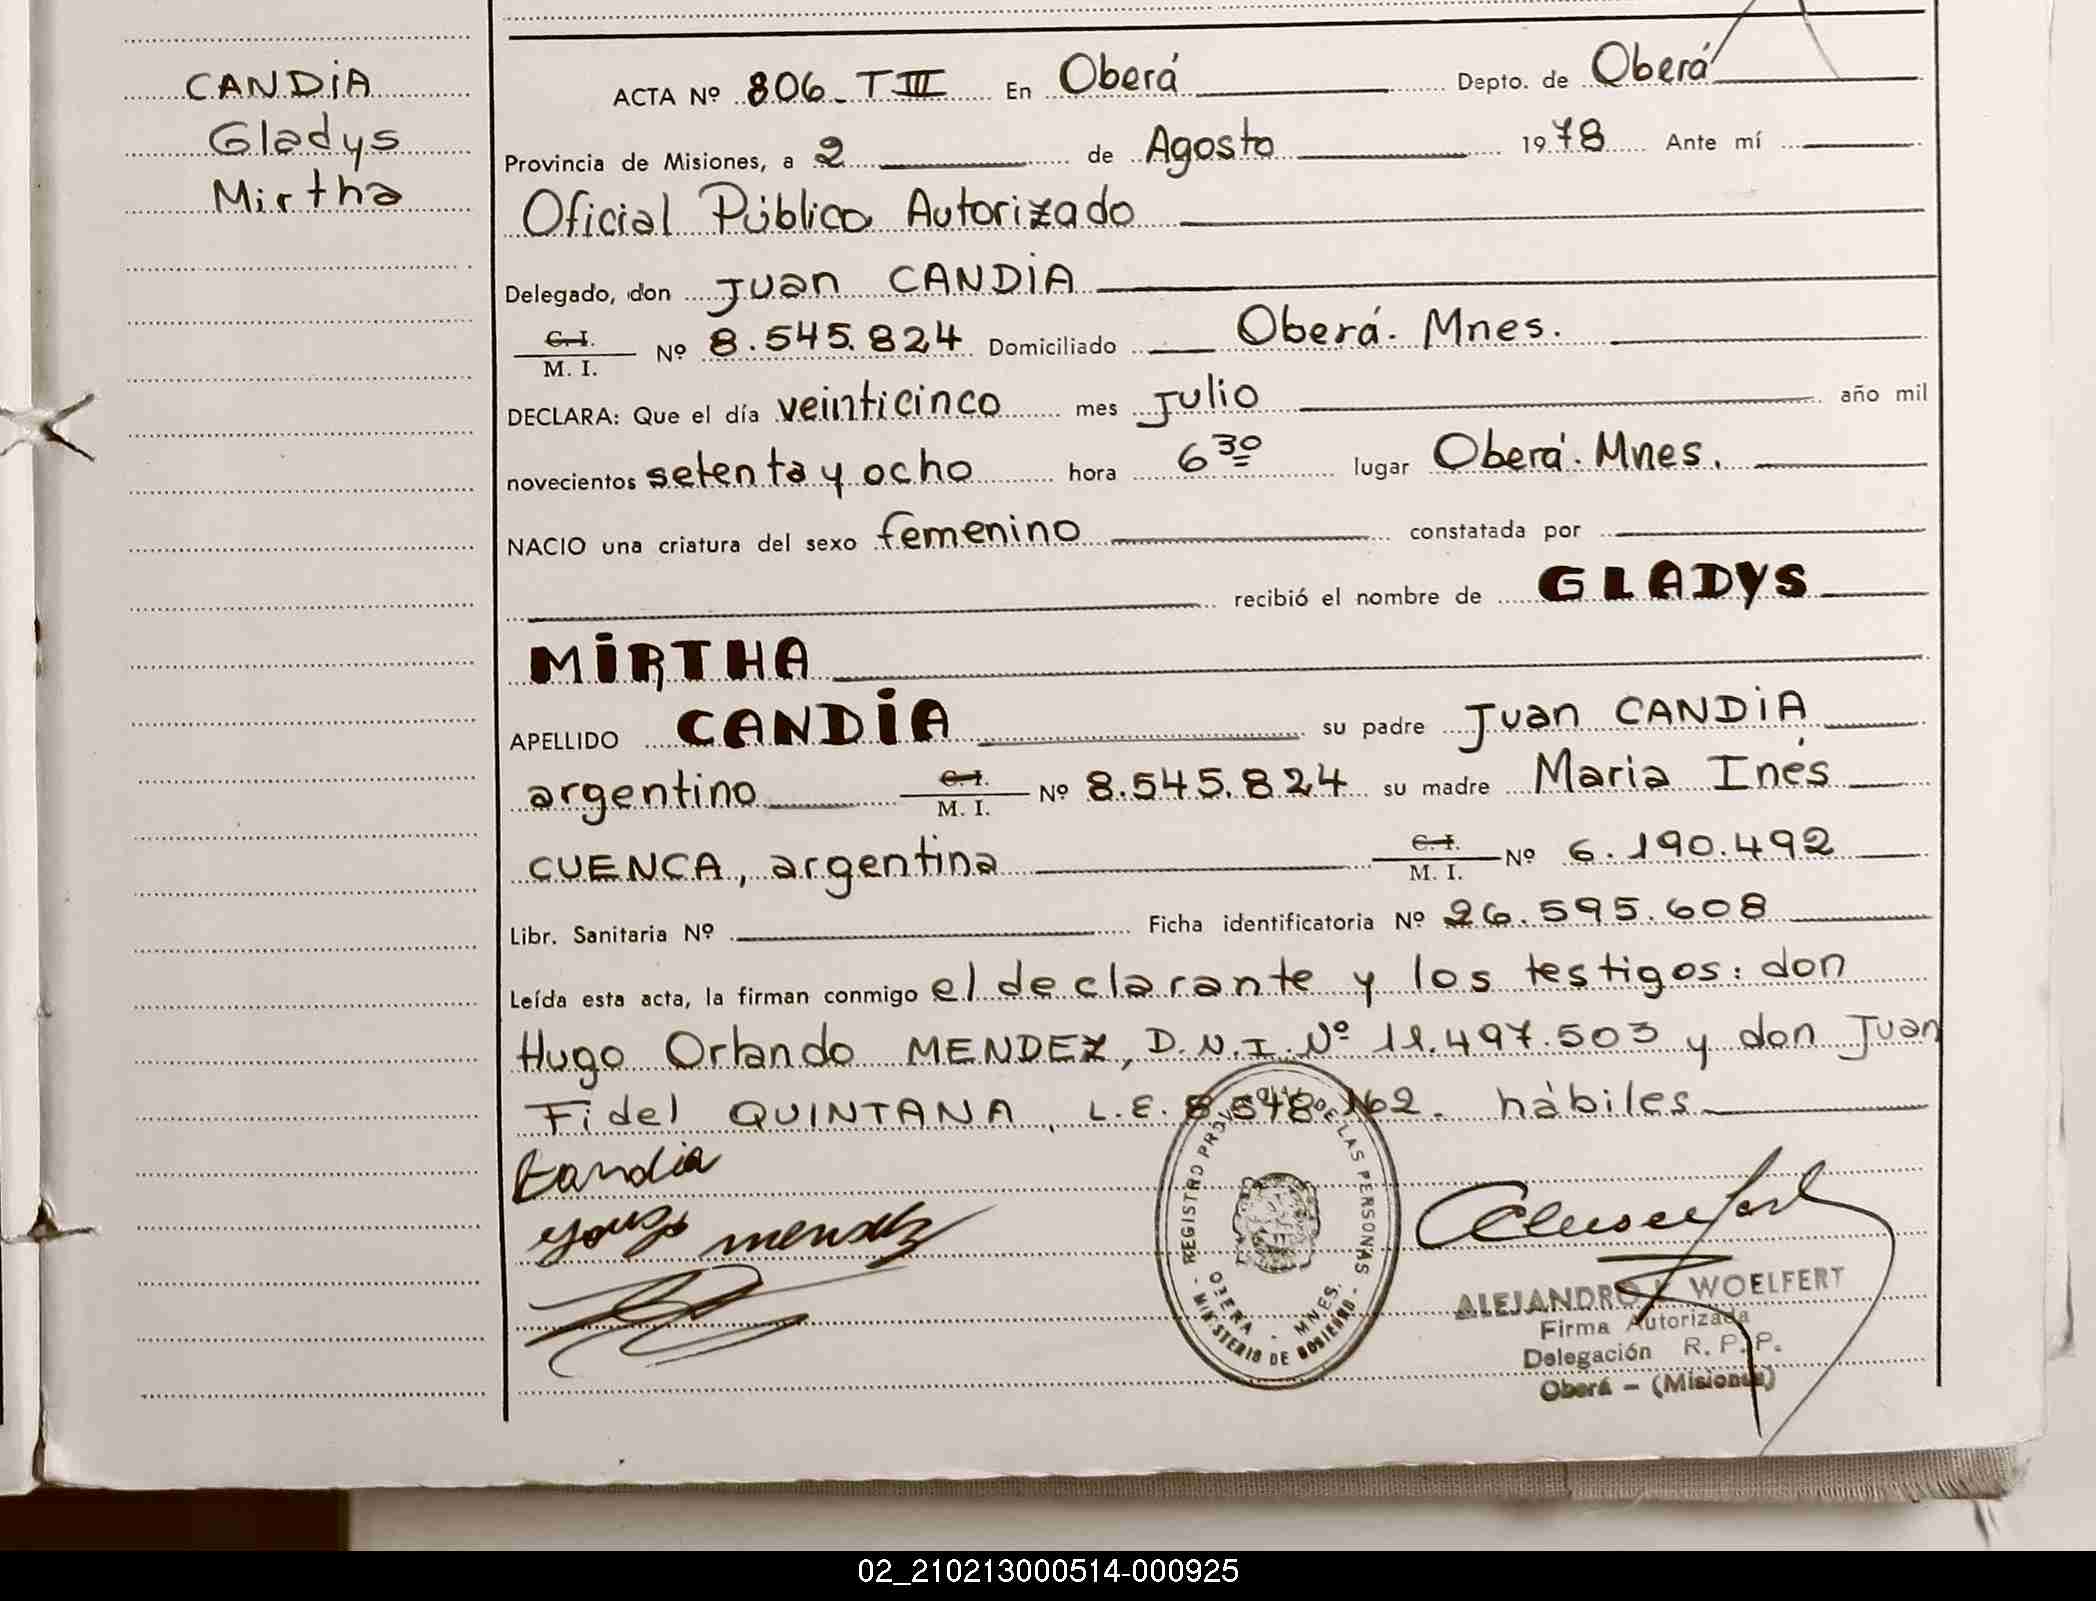 CANDIA
Gladys
Mirtha
ACTA Nº 806-TIII En Oberá Depto. de Oberá
Provincia de Misiones, a 2 de Agosto 1978 Ante mí
Oficial Público Autorizado
Delegado, don Juan CANDIA
C. I.
M. I. Nº 8.545.824 Domiciliado Oberá. Mnes.
DECLARA: Que el día veinticinco mes Julio año mil
novecientos setenta y ocho hora 6 30 lugar Oberá. Mnes.
NACIO una criatura del sexo femenino constatada por
recibió el nombre de GLADYS
MIRTHA
APELLIDO CANDIA su padre Juan CANDIA
argentino C. I. M. I. Nº 8.545.824 su madre Maria Inés
CUENCA, argentina C. I. M. I. Nº 6.190.492
Libr. Sanitaria Nº Ficha identificatoria Nº 26.595.608
Leída esta acta, la firman conmigo el declarante y los testigos: don
Hugo Orlando MENDEZ, D.N.I. Nº 11.497.503 y don Juan
Fidel QUINTANA, L.E. 8.548.162. hábiles
Candia
Hugo mendez
REGISTRO PROVINCIAL DE LAS PERSONAS
OBERA - MNES.
MINISTERIO DE GOBIERNO
ALEJANDRO WOELFERT
Firma Autorizada
Delegación R. P. P.
Oberá - (Misiones)
02_210213000514-000925